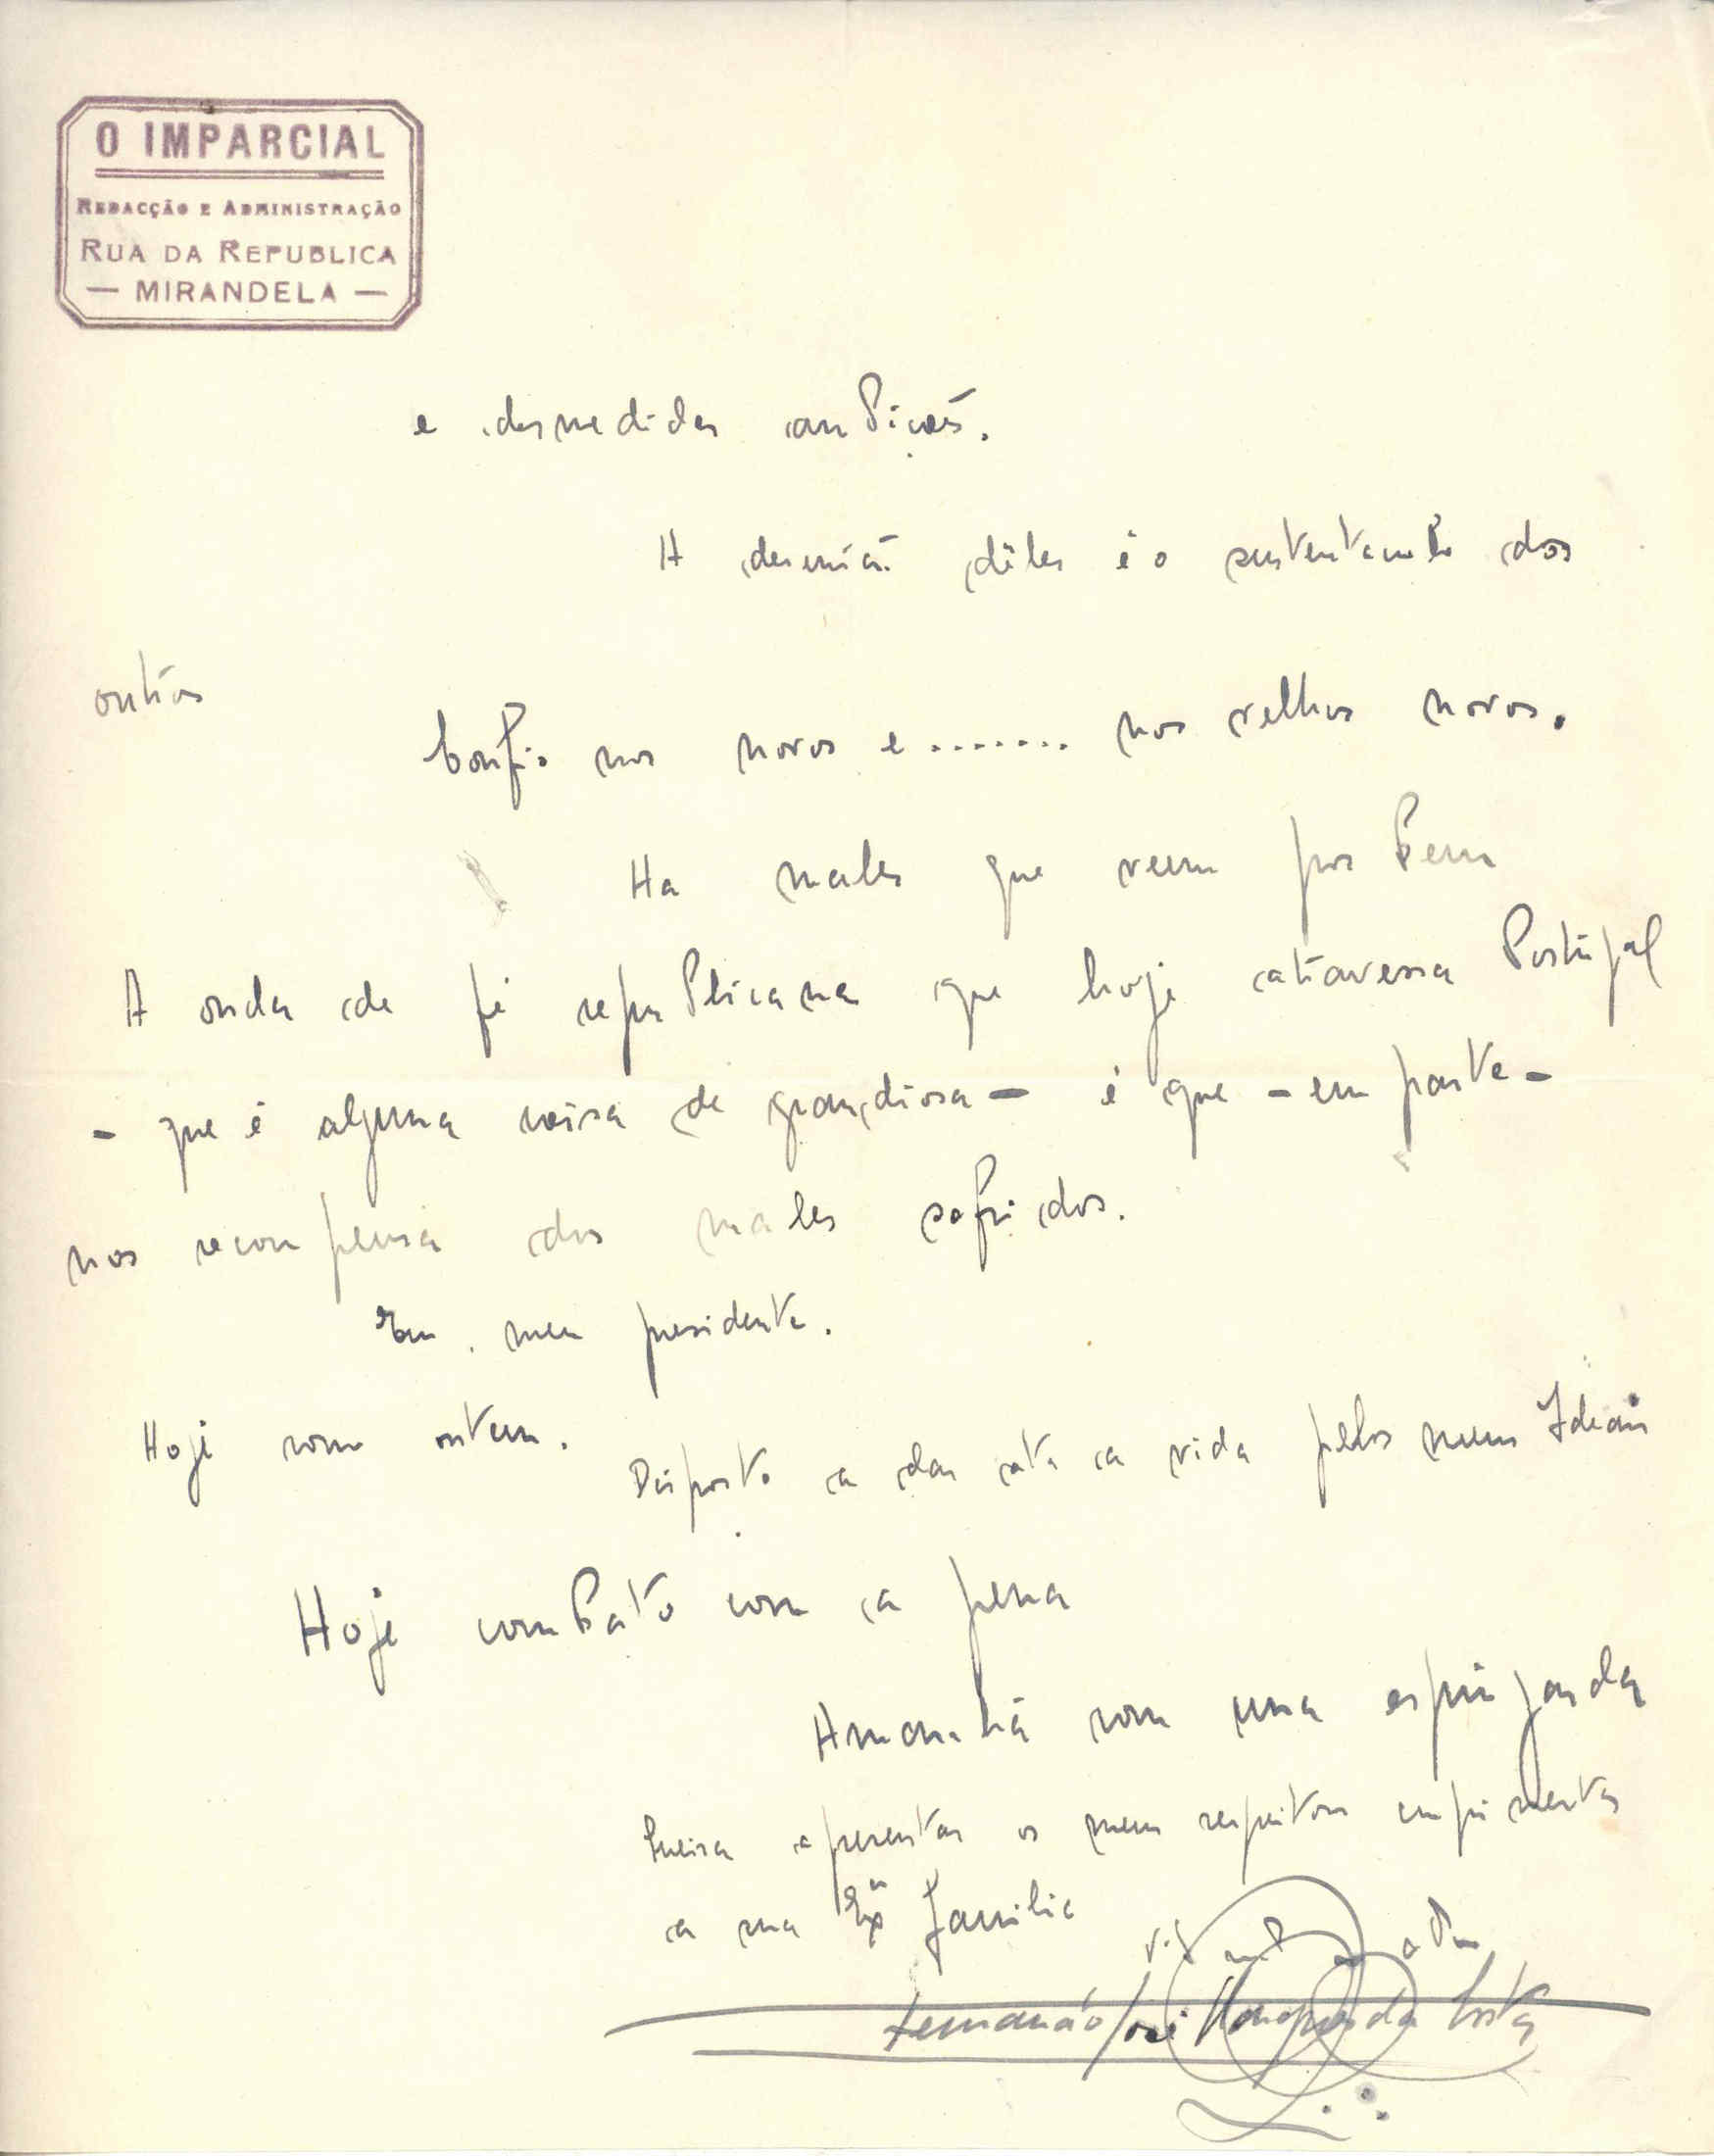 O IMPARCIAL
REDACÇÃO E ADMINISTRAÇÃO
RUA DA REPUBLICA
— MIRANDELA —
e desmedidas ambições.
A desunião dêles é o sustentaculo dos
outros
Confio nos novos e ....... nos velhos novos.
Ha males que veem por bem
A onda de fé republicana que hoje atravessa Portugal
- que é alguma coisa de grandiosa - é que - em parte -
nos recompensa dos males sofridos.
Eu, meu presidente.
Hoje como ontem.
Disposto a dar até a vida pelos meus Ideais
Hoje combato com a pena
Amanhã com uma espingarda
Queira apresentar os meus respeitosos cumprimentos
a sua Exª Familia
Fernando José Marques da Costa